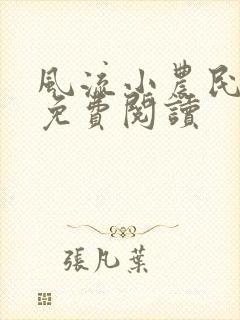 風流小農民
免費閱讀
張凡葉